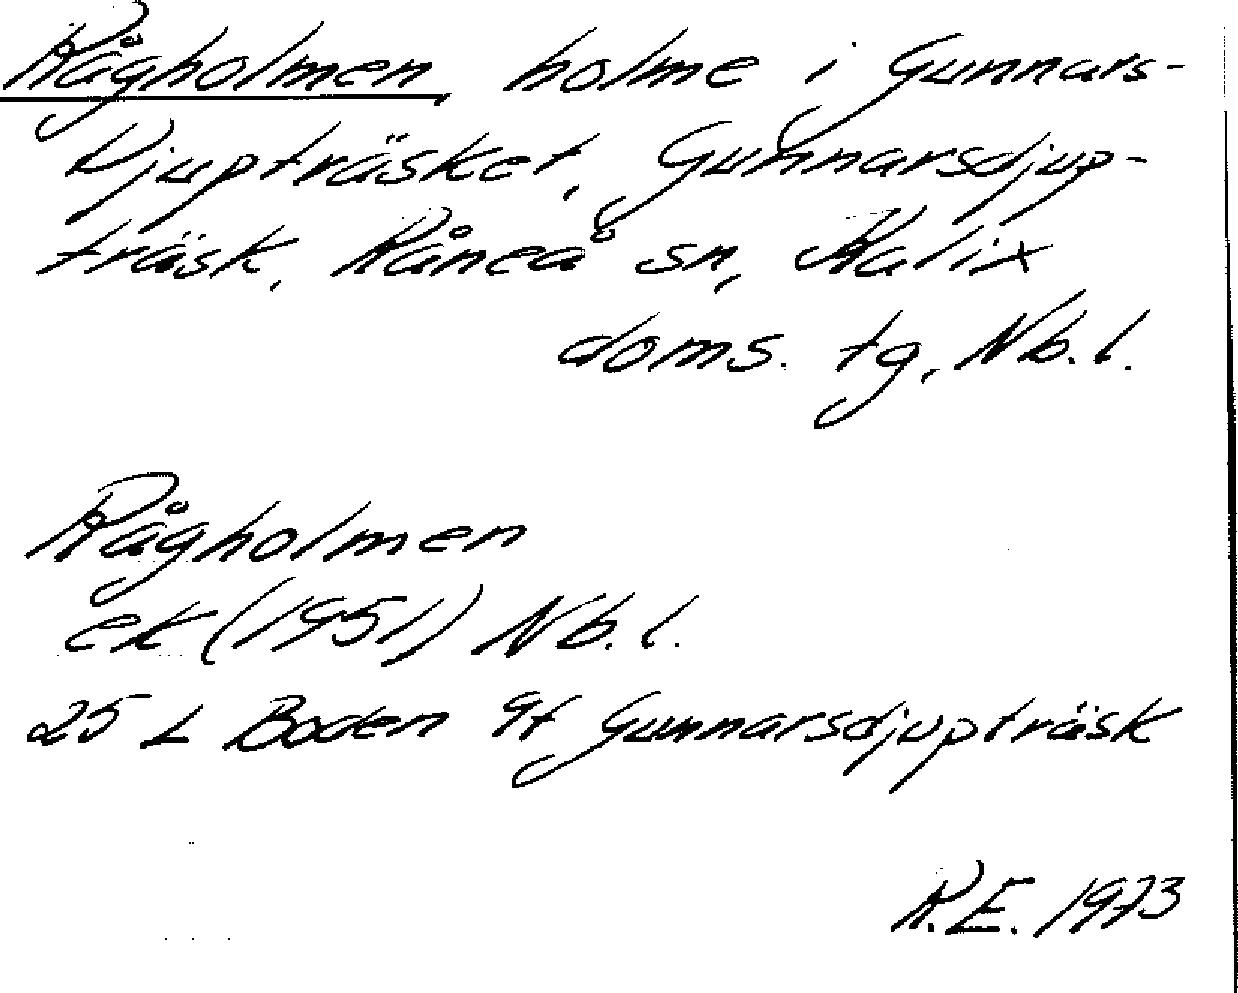 Rågholmen, holme i Gunnars-
djupträsket, Gunnarsdjup-
träsk, Råneå sn, Kalix
doms. tg, Nb. l.
Rågholmen
ek (1951) Nb. l.
25 L Boden 9f Gunnarsdjupträsk
R.E. 1973